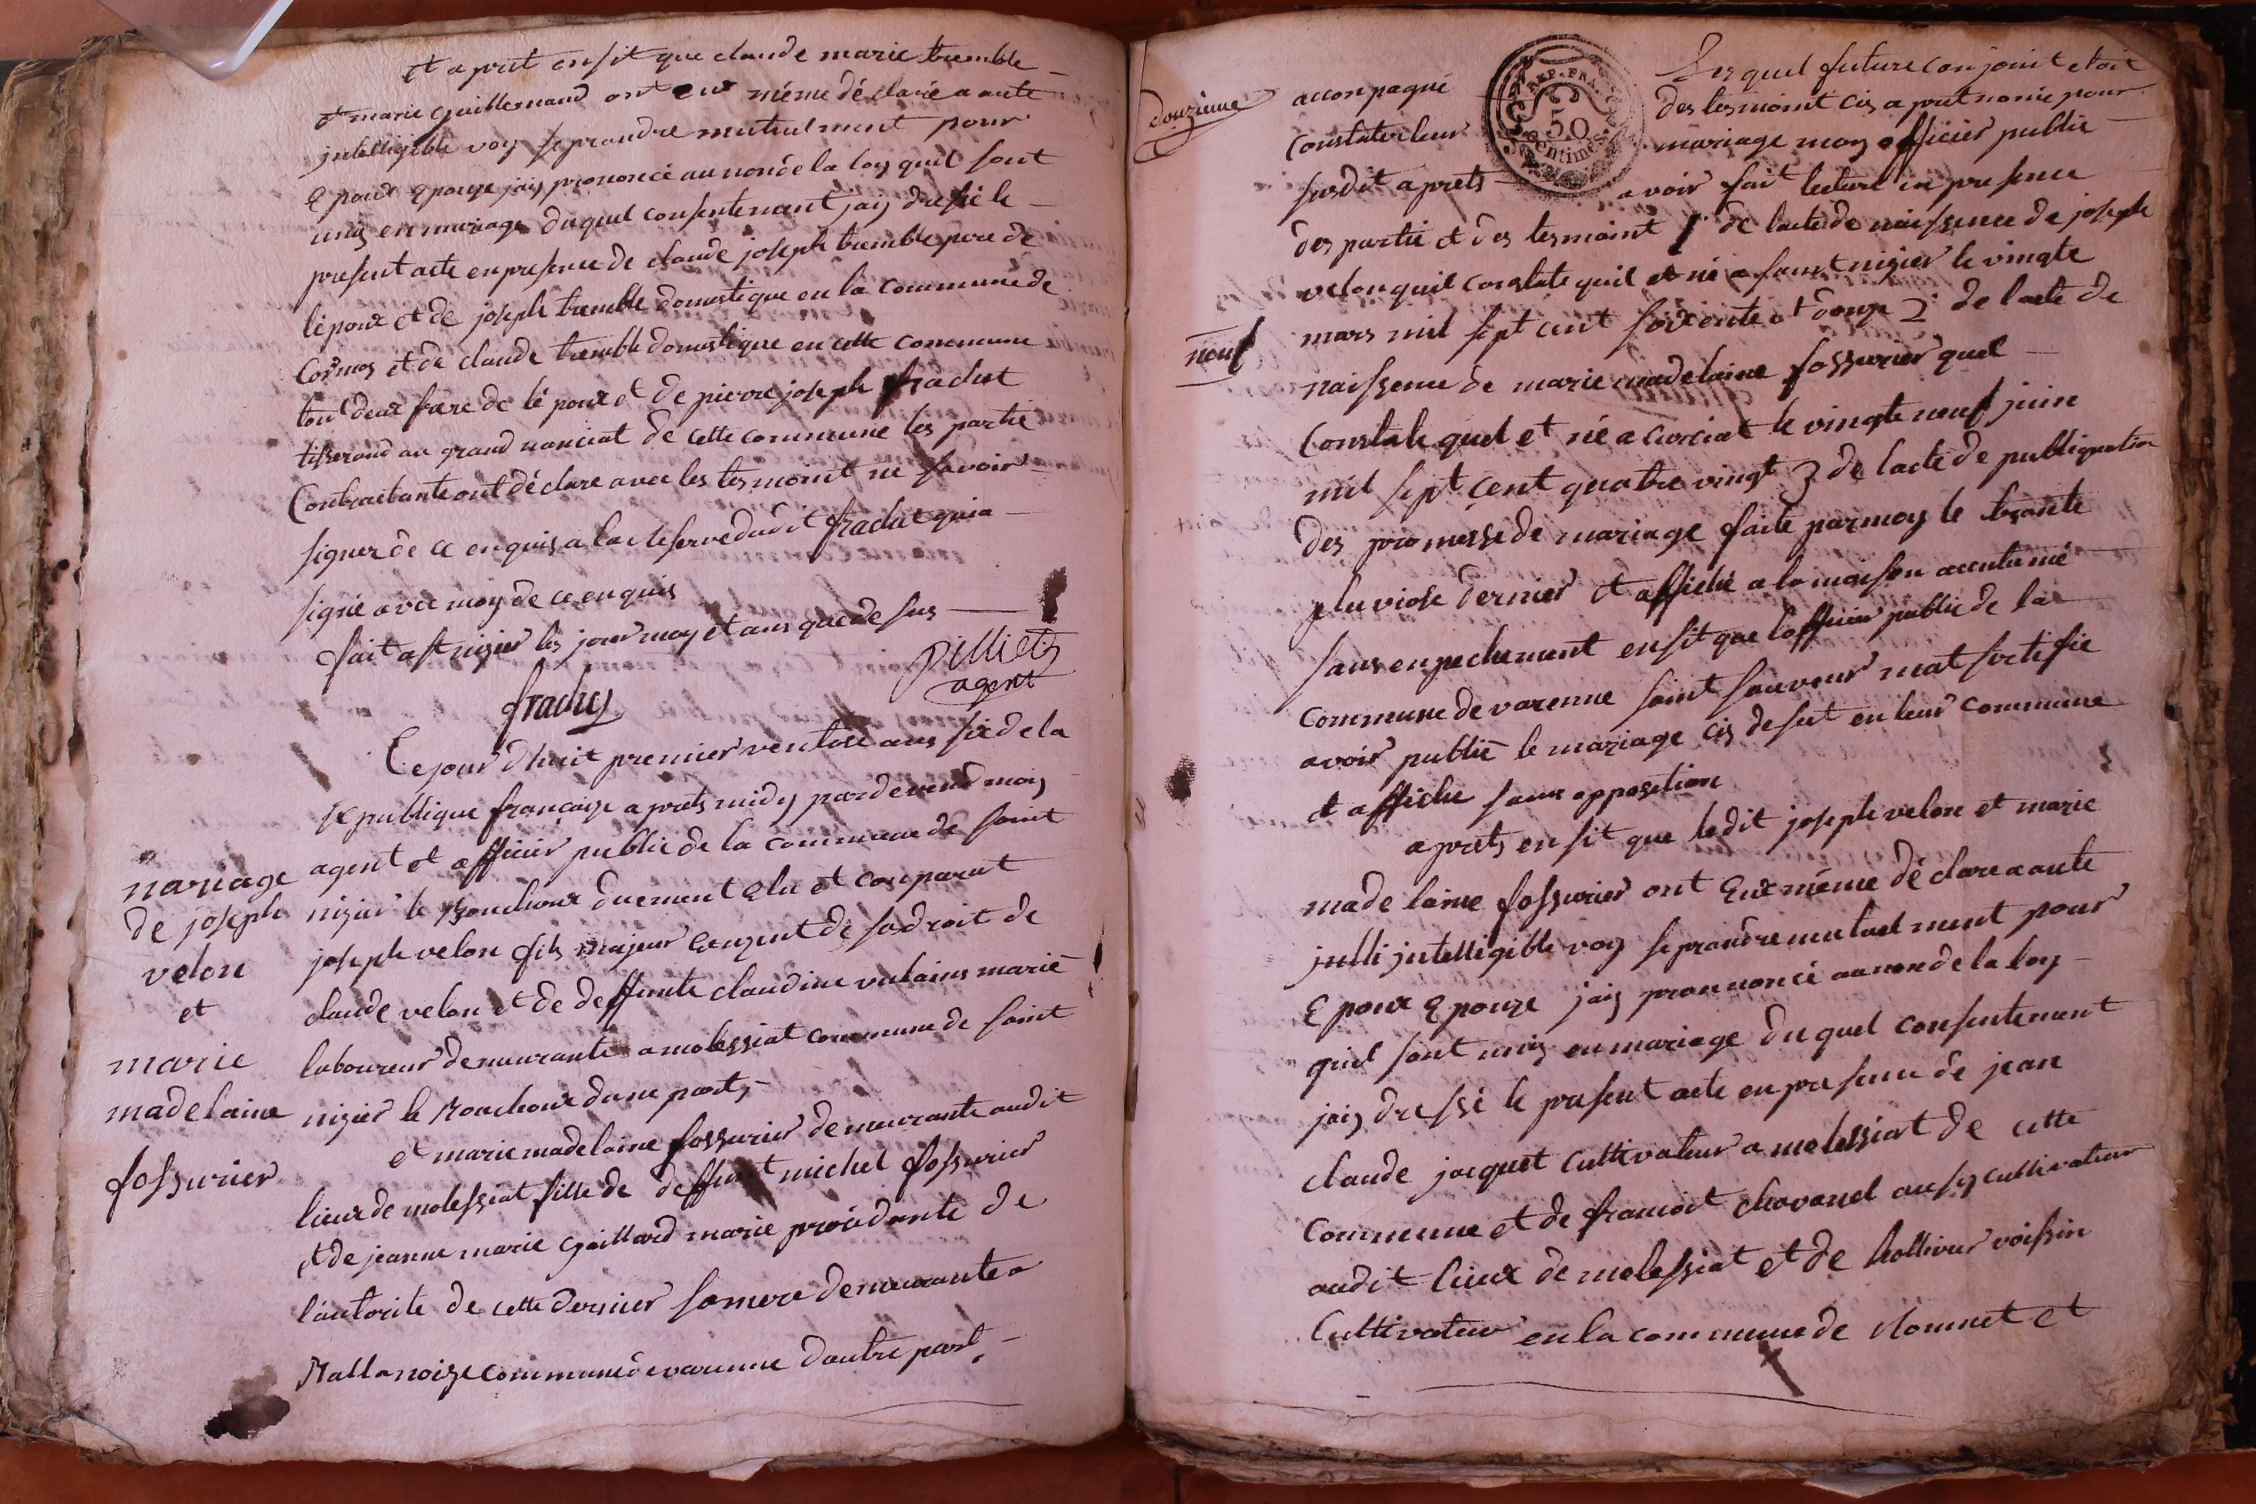 et a prit en sit que claude marie tremble
et marie guillemaud ont eux méme déclarée a aute
jntelligible voy se prandre mutuelment pour
Epoux Epouze jais prononcé au non de la loy quil sont
unis en mariage duquel consentement jais dressé le
present acte en presence de claude joseph tremble pere de
lépoux et de joseph tremble domestique en la commune de
Cormoz et de claude tremble domestique en cette commune
tout deux frere de lépoux et de pierre joseph frachet
tisserand au grand nanciat de cette commune les partie
Contractante ont déclare avec les tesmoint ne savoir
signer de ce enquis a la reserve dudit frachet qui a
signé avec moy de ce enquis
fait a st nizier les jour moy et ans que de sus
frachet
pilliet
agent
Cejour dhuit premier ventose ans six de la
Republique françaize a prets midy pardevend moy
agent et officier public de la commune de saint
nizier le Bouchoux duement Elu et conparut
joseph velon fils majeur Euzent de sa droit de
claude velon et de deffunte claudine vulains marié
laboureur demeurante a molessiat commune de saint
nizier le Bouchoux dune part,
et marie madelaine fossurier demeurante audit
lieux de molessiat fille de deffunt michel fossurier
et de jeanne marie gaillard marie procédante de
lautorite de cette dernier sa mere demeurante a
Rattanoize commune de varenne dautre part
mariage
de joseph
velon
et
marie
madelaine
fossurier
douzieme
Les quel future conjoint etoit
accompagné
des tesmoint cis a pret nomé pour
Constater leur
mariage moy officier public
susdit a prets
avoir fait lecture en presence
REP. FRA.
50
Centimes
des partie et des tesmoint 1° de lacte de naissence de joseph
velon quil constate quil et né a saint nizier le vingte
neuf
mars mil sept cent soixente et douze 2° de lacte de
naissence de marie madelaine fossurier quel
Constate quel et né a curciat le vingte neuf juin
mil sept cent quatre vingt 3 de lacte de publiquation
des promesse de mariage faite par moy le trante
pluviose dernier et affiché a la maison acoutumé
sans enpechement ensit que lofficier public de la
Commune de varenne saint sauveur mat sertifie
avoir publié le mariage cis desut en leur commune
et affiche sans opposition
a prets en sit que ledit joseph velon et marie
madelaine fossurier ont Eux méme déclare a aute
jntelli jntelligible voy se prandre mutuelment pour
Epoux Epouze jais prononcé au non de la loy
quil sont unis en mariage duquel consentement
jais dressé le present acte en presence de jean
claude jacquet cultivateur a molessiat de cette
Commune et de francoit chavanel ausy cultivateur
audit lieux de molessiat et de hollivier voissin
Cultivateur en la commune de domnet et